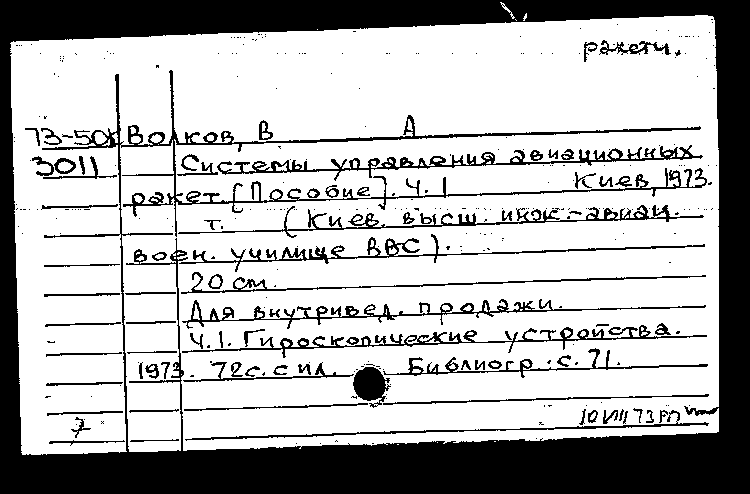 ракетн.
73-50к Волков, В А
3011 Системы управления авиационных
ракет. [Пособие]. Ч. 1 Киев, 1973.
т. (Киев. высш. инж.-авиац.
воен. училище ВВС).
20 см.
Для внутривед. продажи.
Ч.1. Гироскопические устройства.
1973. 72с. с ил. Библиогр.: с. 71.
7 10 VIII 73